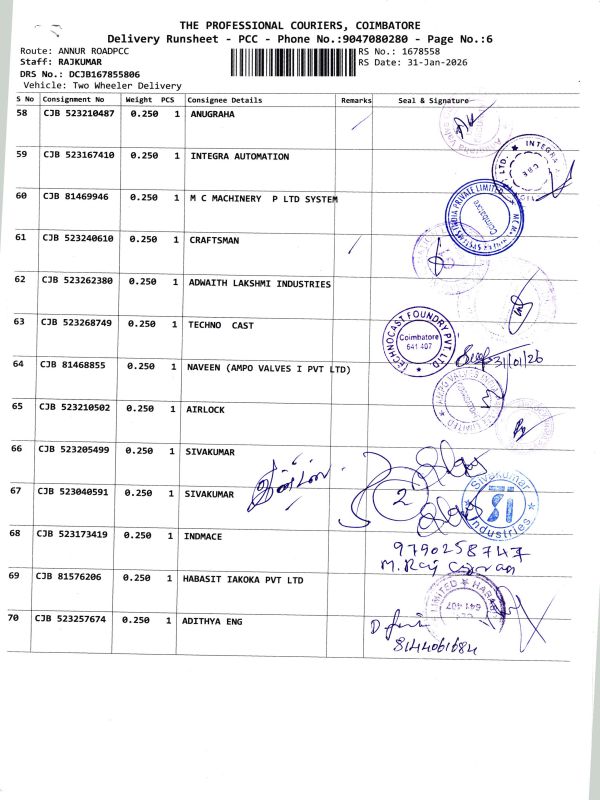 THE PROFESSIONAL COURIERS, COIMBATORE
Delivery Runsheet - PCC - Phone No.:9047080280 - Page No.:6
Route: ANNUR ROADPCC
RS No.: 1678558
Staff: RAJKUMAR
RS Date: 31-Jan-2026
DRS No.: DCJB167855806
Vehicle: Two Wheeler Delivery
S No Consignment No Weight PCS Consignee Details Remarks Seal & Signature
58 CJB 523210487 0.250 1 ANUGRAHA
59 CJB 523167410 0.250 1 INTEGRA AUTOMATION
60 CJB 81469946 0.250 1 M C MACHINERY P LTD SYSTEM
61 CJB 523240610 0.250 1 CRAFTSMAN
62 CJB 523262380 0.250 1 ADWAITH LAKSHMI INDUSTRIES
63 CJB 523268749 0.250 1 TECHNO CAST
TECHNOCAST FOUNDRY PVT. LTD.
Coimbatore
641 407
31/01/26
64 CJB 81468855 0.250 1 NAVEEN (AMPO VALVES I PVT LTD)
65 CJB 523210502 0.250 1 AIRLOCK
66 CJB 523205499 0.250 1 SIVAKUMAR
67 CJB 523040591 0.250 1 SIVAKUMAR
2
Sivakumar
SI
Industries
68 CJB 523173419 0.250 1 INDMACE
9790258747
69 CJB 81576206 0.250 1 HABASIT IAKOKA PVT LTD
641 407
70 CJB 523257674 0.250 1 ADITHYA ENG
8144061684